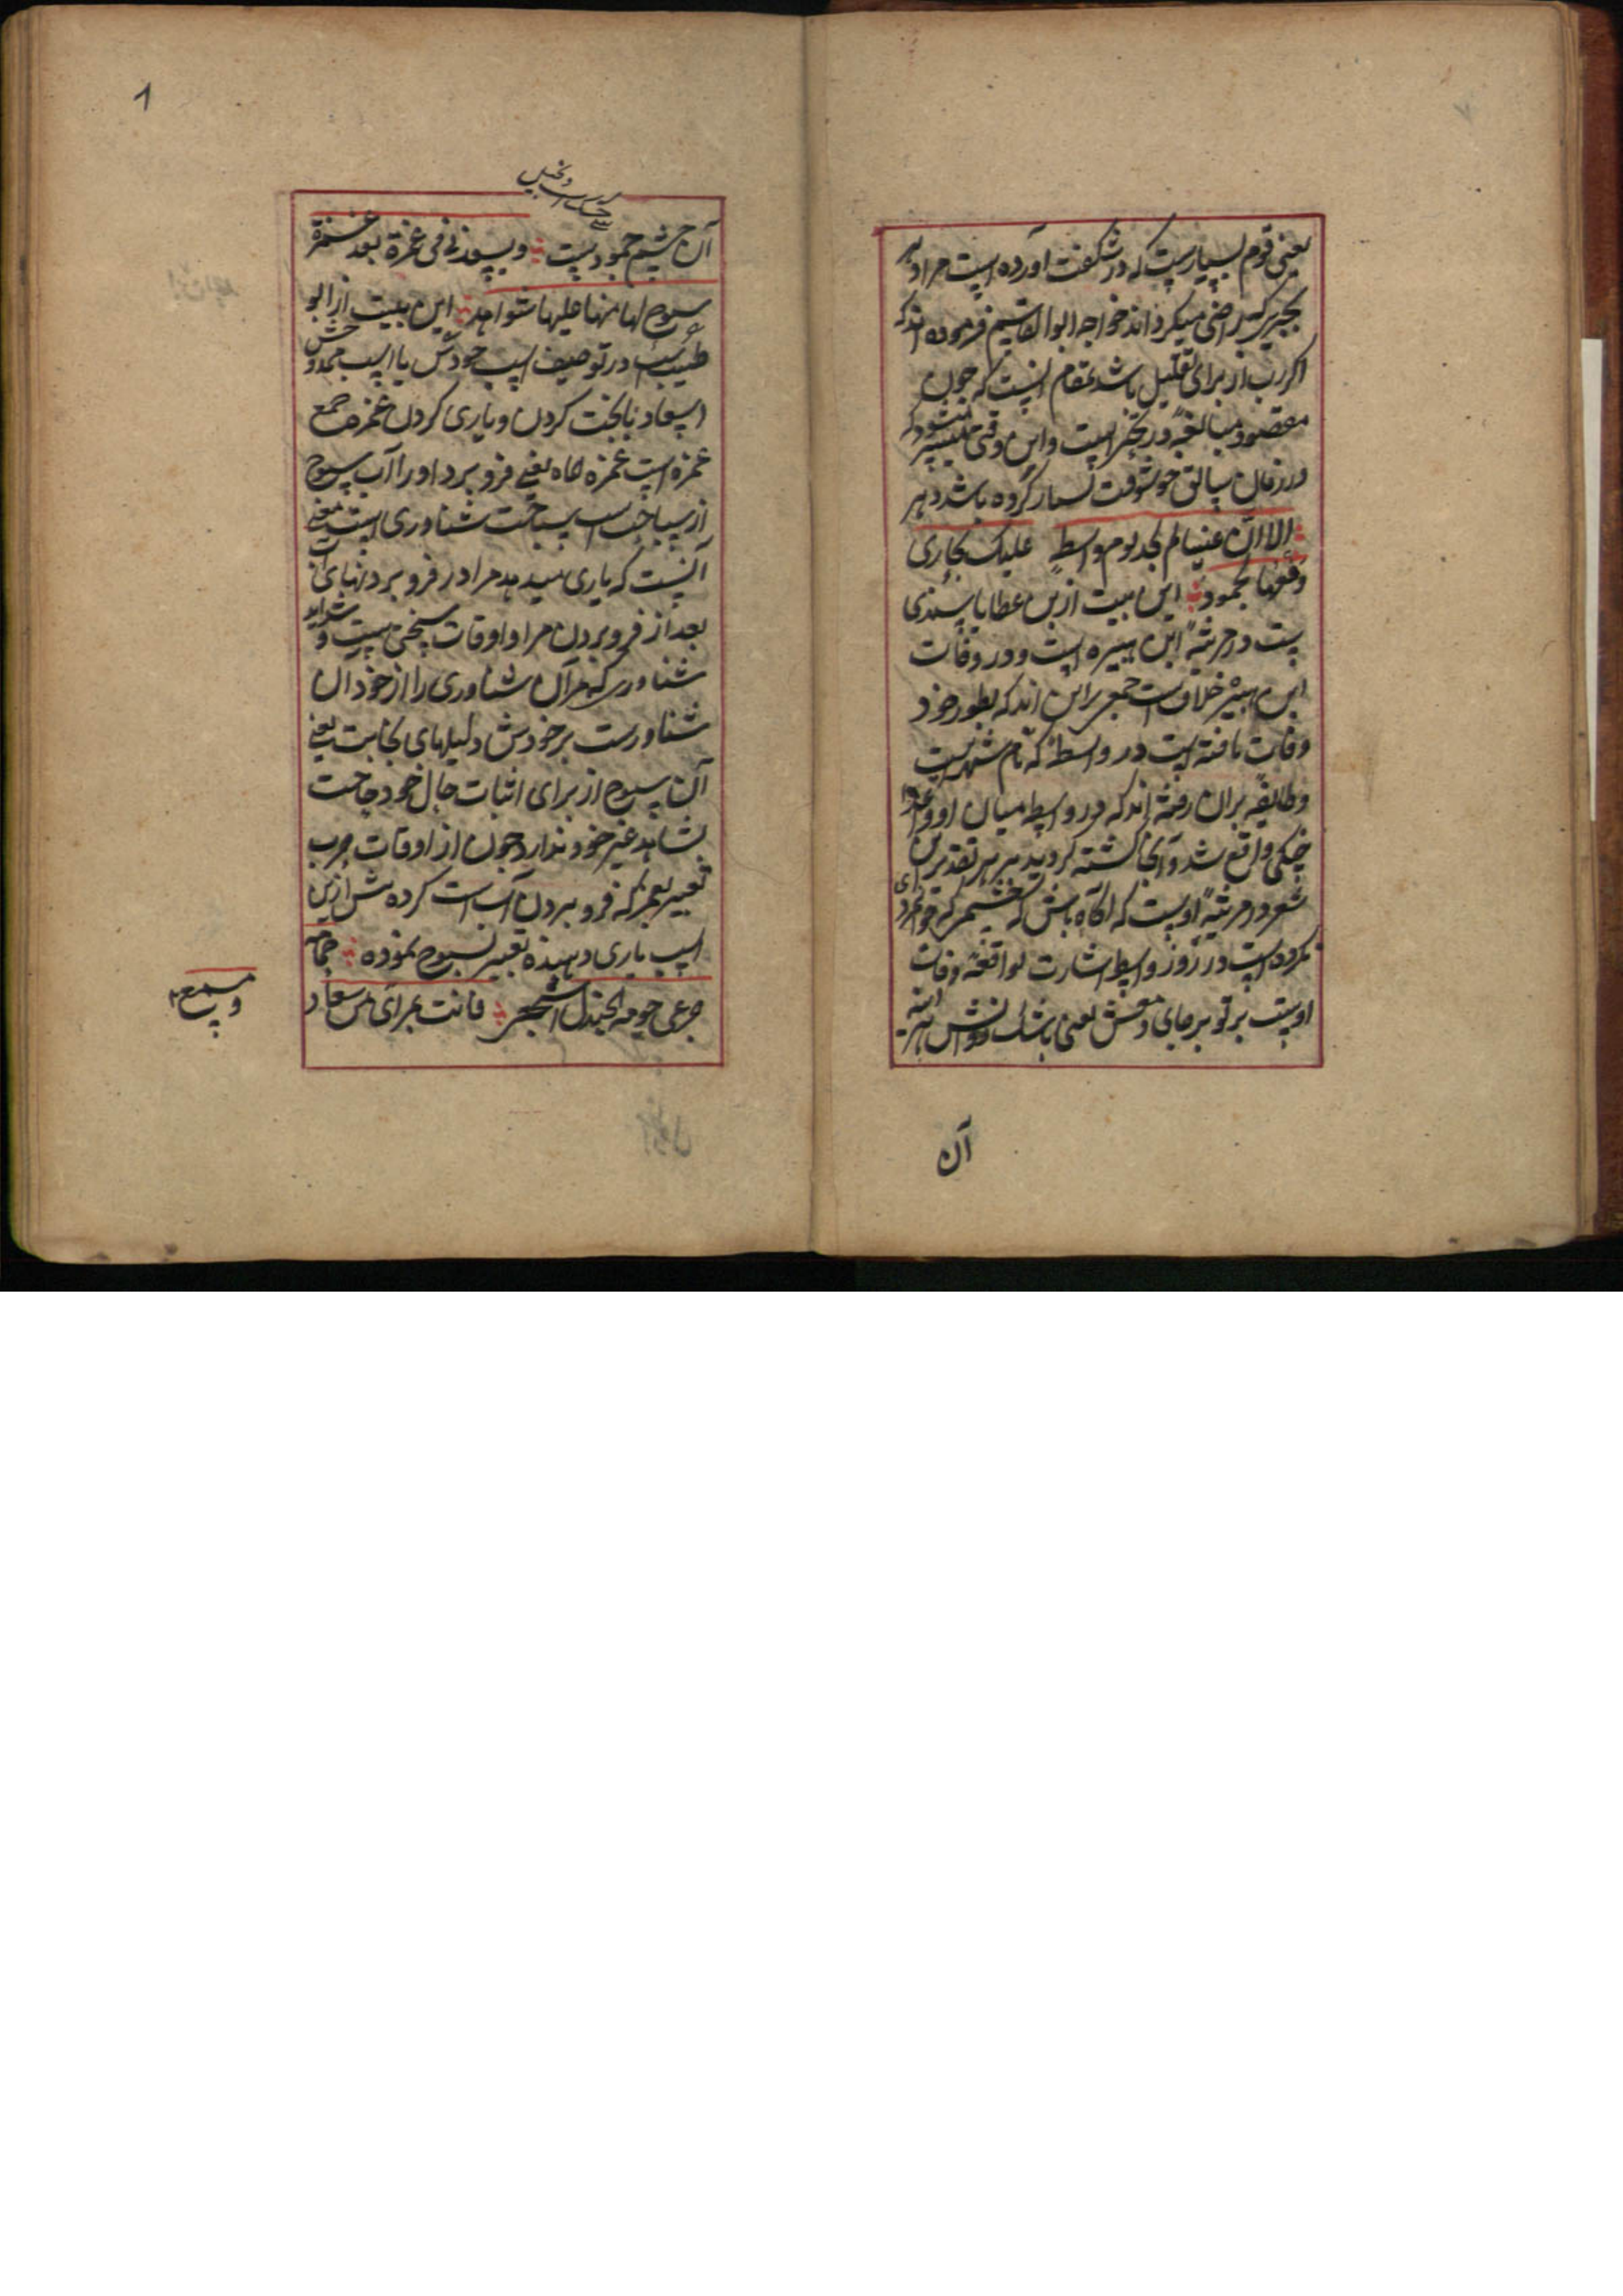 یعنی قوم بسیارست که در شکفت آورده است مرا دهر
بچیزی که راضی میکرداند خواجه ابوالقاسم فرموده اند که
اکر رب از برای تقلیل باشد بمقام انسبت که چون
مقصود مبالغهٔ در تحیر است و این وقتی میشود که
در زمان سابق خوشوقت بسیار کرده باشد دهر
الا ان عینا لم تجد یوم واسط علیک بجاری
دمعها لجمود این بیت از بن عطایا سندی
ست در مرثیهٔ ابن هبیره است و در وفات
ابن هبیره خلاف است جمعی براین اند که بطور خود
وفات یافته است در واسط که نام شهریست
و طایفهٔ بران رفته اند که در واسط میان او و اعدا
جنکی واقع شد و آنجا کشته کردید بر هر تقدیر این
شعر در مرثیهٔ اوست که اکاه باش که چشمی که جوانمردی
نکرده است در روز واسط اشارت بواقعهٔ وفات
اوست بر تو برجای دمعش یعنی باشک روانش هر آینه
آن
1
آن چشم جمود ست و یسعدنی فی غمرة بعد غمرة
خشک است و بخیل
سبوح لها منها علیها شواهد این بیت از ابو
طیب است در توصیف اسب خودش یا اسب ممدوحش
اسعاد نابخت کردن و یاری کردن غمره جمع
غمزه است غمزه الماه یعنی فرو برد او را آب سبوح
از سباحت است سباحت شناوری است معنی
آنست که یاری میدهد مرا در فرو بردنهای آب
بعد از فرو بردن مرا و اوقات سختی ست و شداید
شناوری که مر آن شناوری را از خود آن
شناورست بر خودش دلیلهای نجابت یعنی
آن سبوح از برای اثبات حال خود حاجت
بشاهد غیر خود ندارد چون از اوقات حرب
تعبیر بغمز که فرو بردن آب است کرده پس ازین
اسب یاری دهنده تعبیر بسبوح نموده حمامه
جرعی حومة الجندل اسجعی فانت بمرأی من سعاد
و مسمع